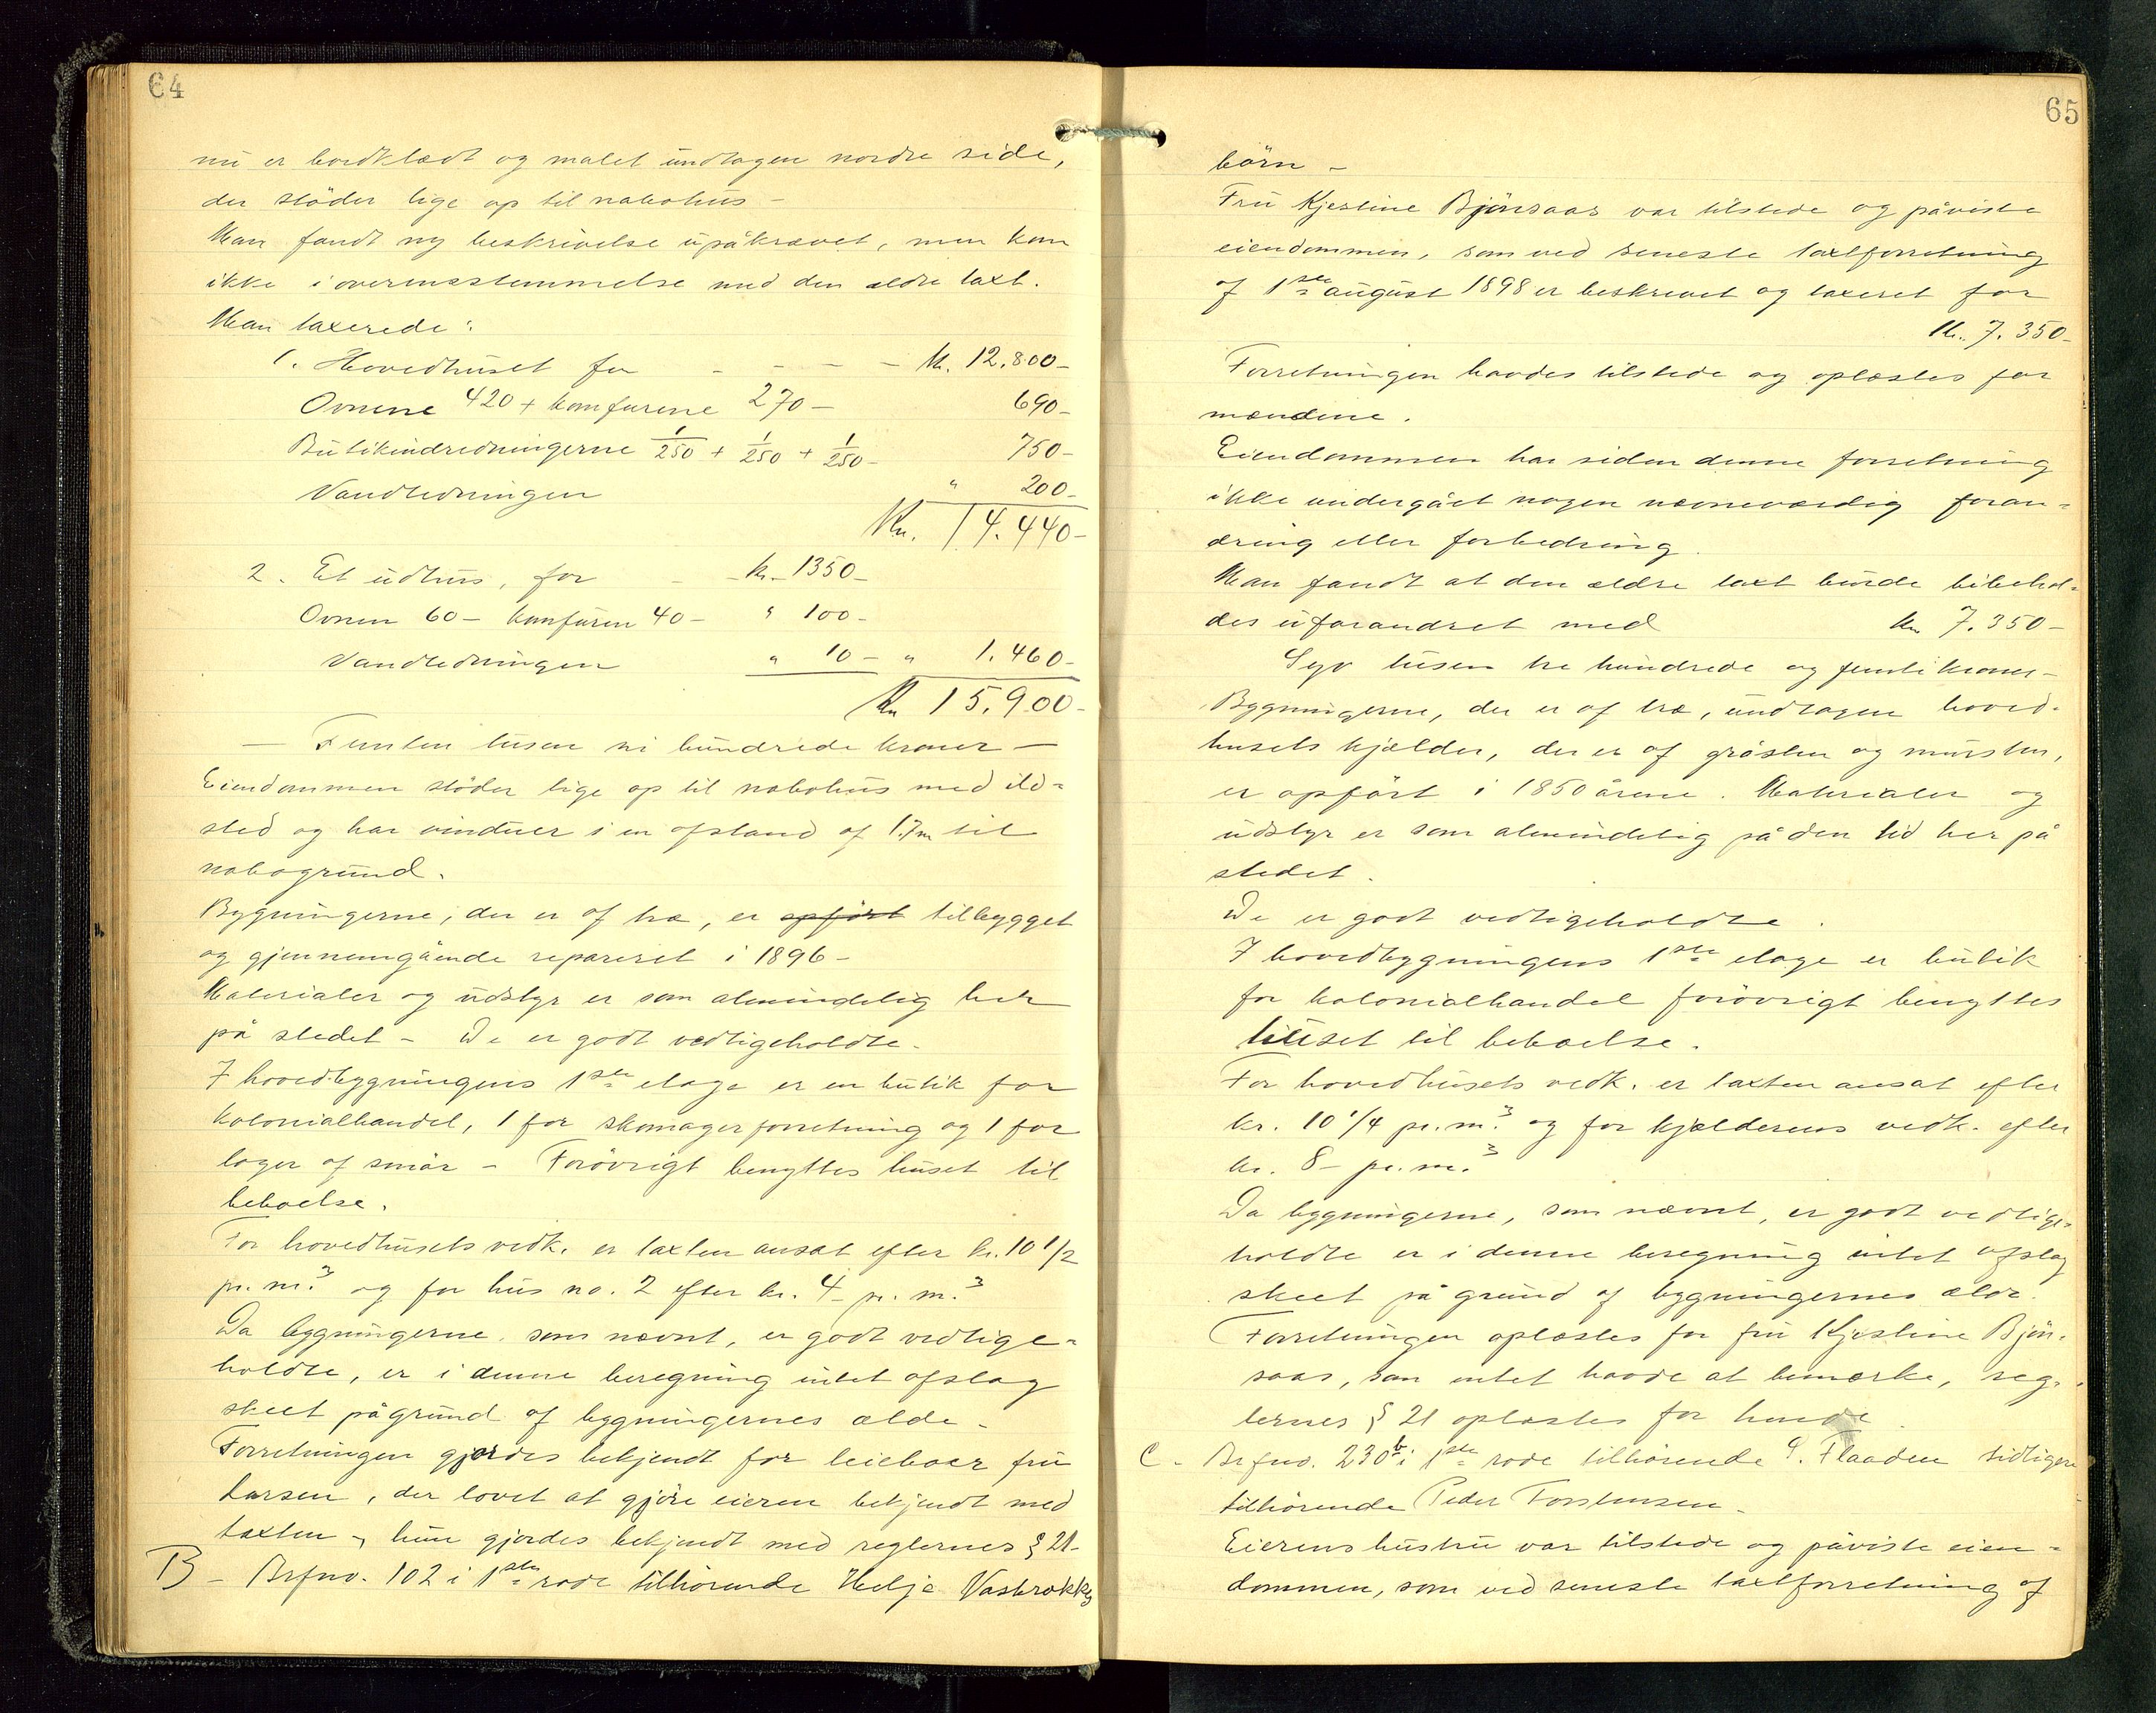 64
nu er bordklædt og malet undtagen nordre side,
der stöder lige op til nabohus –
Man fandt ny beskrivelse upåkrævet, men kom
ikke i overensstemmelse med den ældre taxt.
Man taxerede:
1. Hovedhuset for – – – – kr. 12.800–
Ovnene 420 + komfurene 270 – 690–
Butikindredningerne 1/250 + 1/250 + 1/250– 750–
Vandledningen " 200–
Kr. 14.440–
2. Et udhus, for – – kr. 1350–
Ovnen 60 – komfuren 40 – " 100–
Vandledningen " 10 – " 1.460–
Kr 15.900–
– Femten tusen ni hundrede kroner –
Eiendommen stöder lige op til nabohus med ild=
sted og har vinduer i en afstand af 1.7m til
nabogrund.
Bygningerne, der er af træ, er opfört tilbygget
og gjennemgående repareret i 1896 –
Materialer og udstyr er som almindelig her
på stedet – De er godt vedligeholdte.
I hovedbygningens 1ste etage er en butik for
kolonialhandel, 1 for skomagerforretning og 1 for
lager af smör – Forövrigt benyttes huset til
beboelse.
For hovedhusets vedk. er taxten ansat efter kr. 10 1/2
pr. m.3 og for hus no. 2 efter kr. 4 – pr. m.3
Da bygningerne som nævnt, er godt vedlige=
holdte, er i denne beregning intet afslag
skeet på grund af bygningernes ælde –
Forretningen gjordes bekjendt for leieboer fru
Larsen, der lovet at gjöre eieren bekjendt med
taxten, hun gjordes bekjendt med reglernes § 21–
B – Brfno. 102 i 1ste rode tilhörende Helje Vasbrækkes
65
börn –
Fru Kjestine Björnsaas var tilstede og påviste
eiendommen, som ved seneste taxtforretning
af 1ste august 1898 er beskrevet og taxeret for
Kr. 7.350–
Forretningen havdes tilstede og oplæstes for
mændene.
Eiendommen har siden denne forretning
ikke undergået nogen nævneværdig foran=
dring eller forbedring.
Man fandt at den ældre taxt burde bibehol=
des uforandret med kr 7.350–
Syv tusen tre hundrede og femti kroner –
Bygningerne, der er af træ, undtagen hoved=
husets kjælder, der er af gråsten og mursten,
er opfört i 1850 årene. Materialer og
udstyr er som almindelig på den tid her på
stedet.
De er godt vedligeholdte.
I hovedbygningens 1ste etage er butik
for kolonialhandel forövrigt benyttes
huset til beboelse.
For hovedhusets vedk. er taxten ansat efter
kr. 10 1/4 pr. m.3 og for kjælderens vedk. efter
kr. 8 – pr. m.3
Da bygningerne, som nævnt, er godt vedlige=
holdte er i denne beregning intet afslag
skeet på grund af bygningernes ælde.
Forretningen oplæstes for fru Kjestine Björn=
saas, som intet havde at bemærke, reg=
lernes § 21 oplæstes for hende.
C – Brfno. 230b i 1ste rode tilhörende P. Flaaden tidligere
tilhörende Peder Torstensen –
Eierens hustru var tilstede og påviste eien=
dommen, som ved seneste taxtforretning af